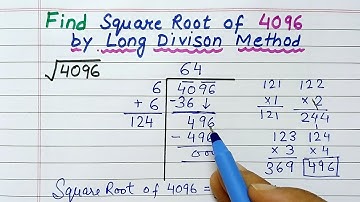 Find Square Root of 4096
by Long Divison Method
√4096
64
6 40 96
+ 6 -36 ↓
124 496
- 496
00
121 122
×1 ×2
121 244
123 124
×3 ×4
369 496
Square Root of 4096 =